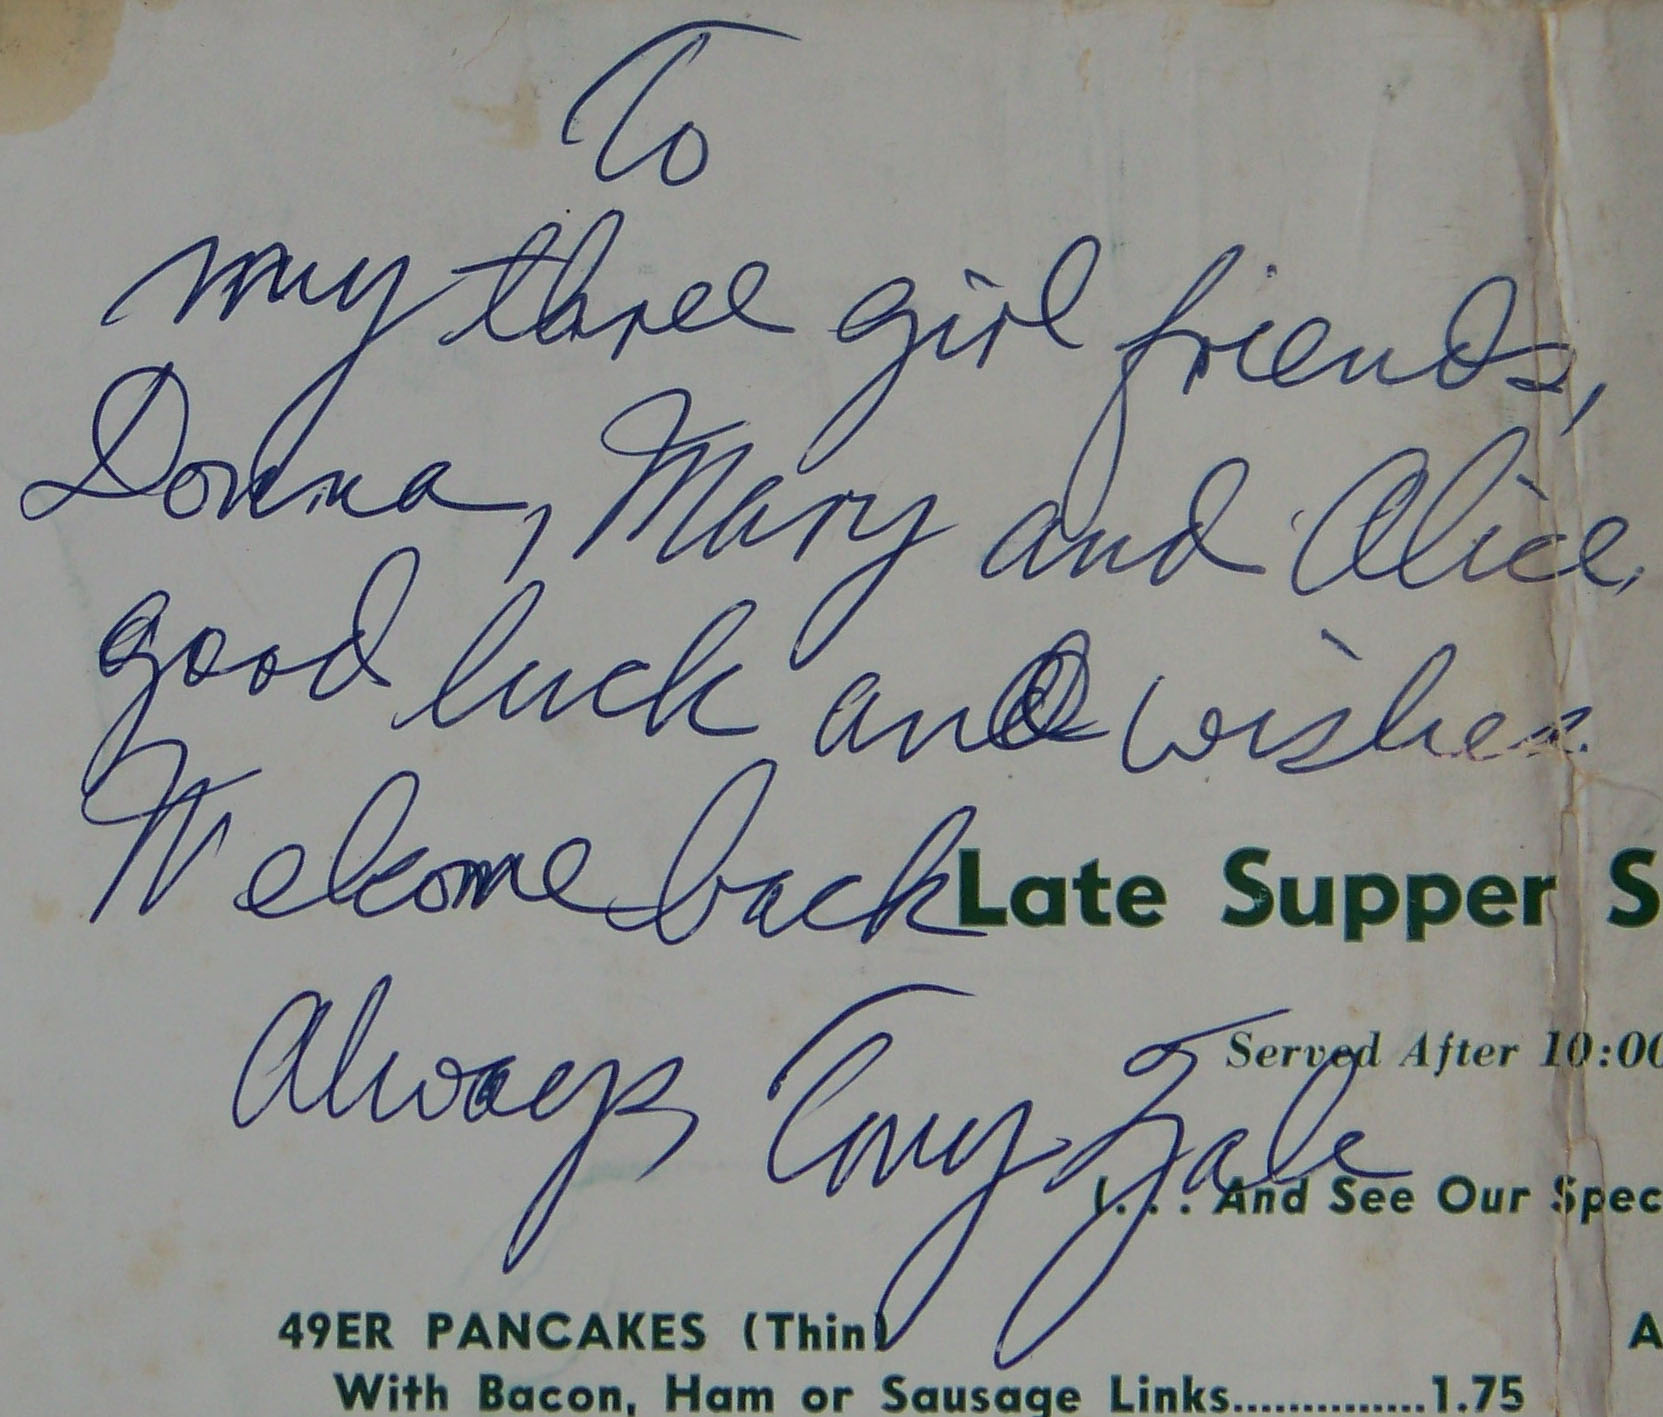 To
my three girl friends,
Donna, Mary and Alice,
good luck and wishes.
Welcome back
Late Supper S
Always Tony Zale
Served After 10:00
(. . . And See Our Spec
49ER PANCAKES (Thin)
A
With Bacon, Ham or Sausage Links...............1.75